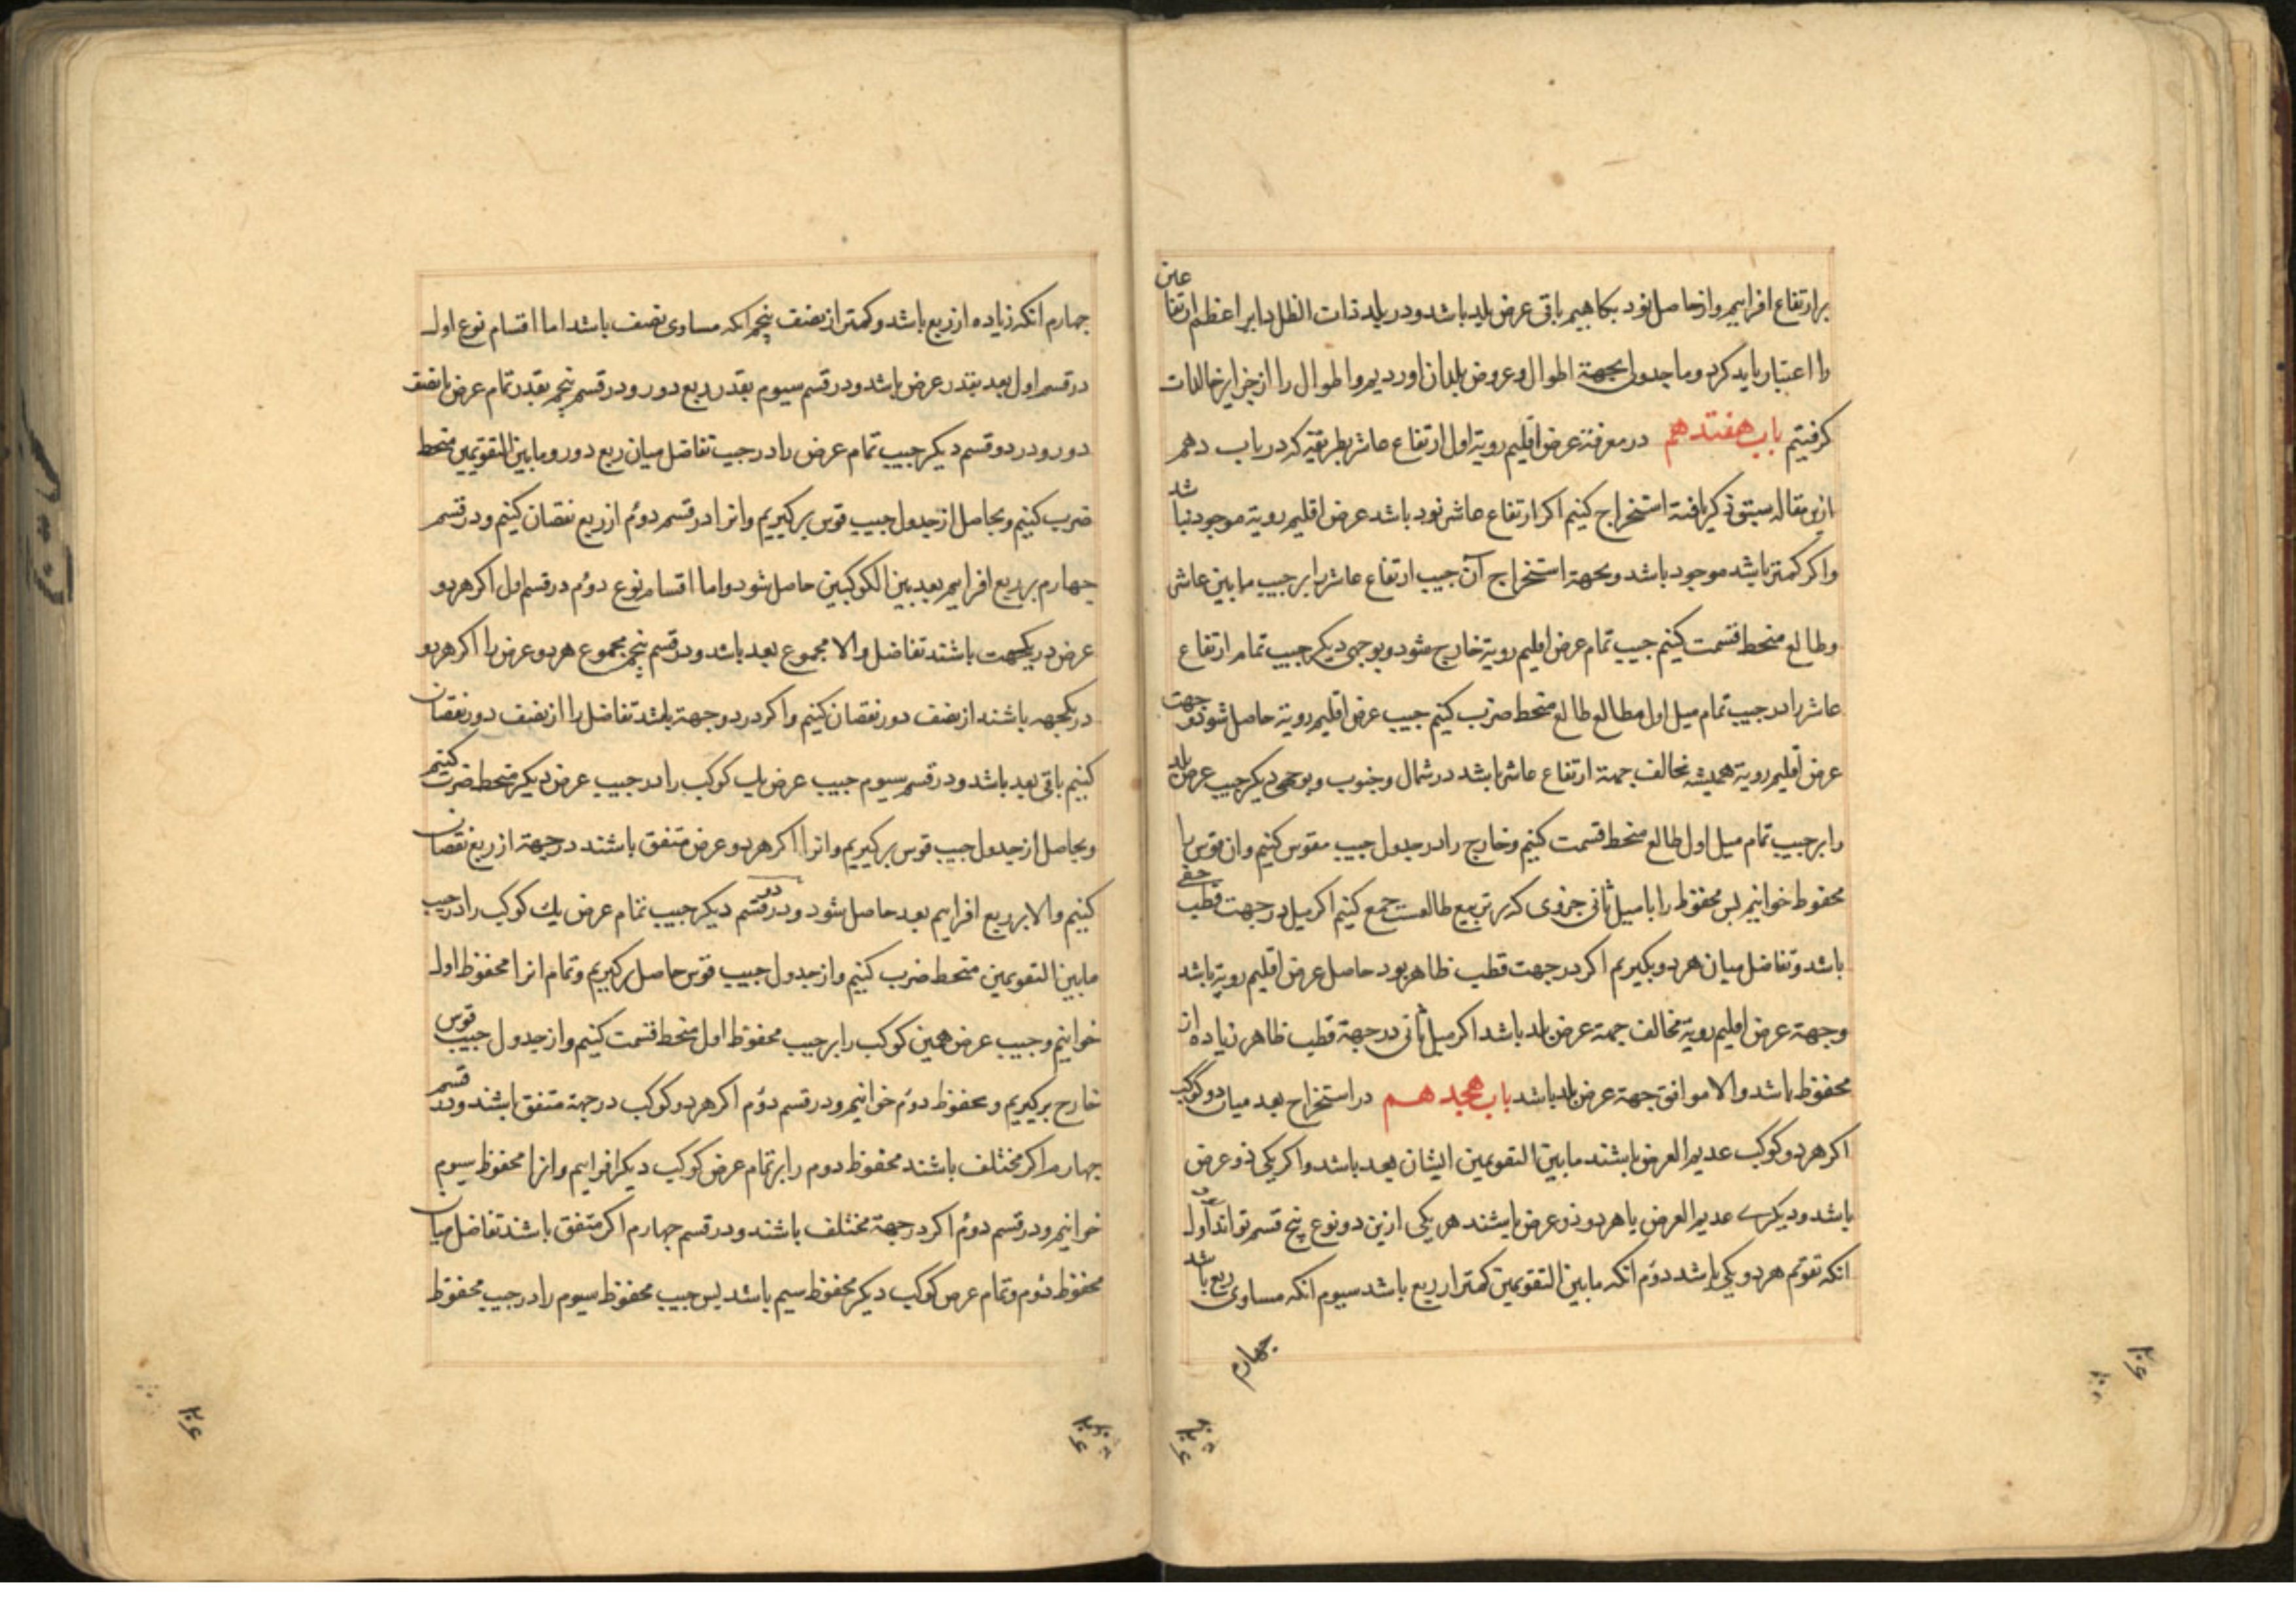 بر ارتفاع افزاییم و از حاصل نود بکاهیم باقی عرض بلد باشد و در بلد ذات الظل دایر اعظم ارتفاعین
را اعتبار باید کرد و ما جدولی بجهة اطوال و عروض بلدان اوردیم و اطوال را از جزایر خالدات
کرفتیم باب هفتدهم در معرفة عرض اقلیم رویة اول ارتفاع عاشر بطریقی که در باب دهم
ازین مقاله سبق ذکر یافته استخراج کنیم اکر ارتفاع عاشر نود باشد عرض اقلیم رویة موجود نباشد
واکر کمتر باشد موجود باشد و بجهة استخراج آن جیب ارتفاع عاشر را بر جیب ما بین عاشر
وطالع منحط قسمت کنیم جیب تمام عرض اقلیم رویة خارج شود و بوجهی دیکر جیب تمام ارتفاع
عاشر را در جیب تمام میل اول مطالع طالع منحط ضرب کنیم جیب عرض اقلیم رویة حاصل شود و جهت
عرض اقلیم رویة همیشه مخالف جهة ارتفاع عاشر باشد در شمال و جنوب و بوجهی دیکر جیب عرض بلد
را بر جیب تمام میل اول طالع منحط قسمت کنیم و خارج را در جدول جیب مقوس کنیم و ان قوس را
محفوظ خوانیم پس محفوظ را با میل ثانی جزوی که بر تربیع طالعست جمع کنیم اکر میل در جهت قطب خفی
باشد و تفاضل میان هر دو بکیریم اکر در جهت قطب ظاهر بود حاصل عرض اقلیم رویة باشد
وجهة عرض اقلیم رویة مخالف جهة عرض بلد باشد اکر میل ثانی در جهة قطب ظاهر زیاده از
محفوظ باشد والا موافق جهة عرض بلد باشد باب هجدهم در استخراج بعد میان دو کوکب
اکر هر دو کوکب عدیم العرض باشند ما بین التقویمین ایشان بعد باشد واکر یکی ذو عرض
باشد و دیکری عدیم العرض یا هر دو ذو عرض باشند هر یکی ازین دو نوع پنج قسم تواند بود اول
انکه تقویم هر دو یکی باشد دوم انکه ما بین التقویمین کمتر از ربع باشد سیوم انکه مساوی ربع باشد
چهارم
چهارم انکه زیاده از ربع باشد و کمتر از نصف پنجم انکه مساوی نصف باشد اما اقسام نوع اول
در قسم اول بعد بقدر عرض باشد و در قسم سیوم بقدر ربع دور و در قسم پنجم بقدر تمام عرض با نصف
دور و در دو قسم دیکر جیب تمام عرض را در جیب تفاضل میان ربع دور و ما بین التقویمین منحط
ضرب کنیم و بحاصل از جدول جیب قوس برکیریم و انرا در قسم دوم از ربع نقصان کنیم و در قسم
چهارم بر ربع افزاییم بعد بین الکوکبین حاصل شود و اما اقسام نوع دوم در قسم اول اکر هر دو
عرض در یکجهت باشند تفاضل والا مجموع بعد باشد و در قسم پنجم مجموع هر دو عرض را اکر هر دو
در یکجهه باشند از نصف دور نقصان کنیم واکر در دو جهة باشد تفاضل را از نصف دور نقصان
کنیم باقی بعد باشد و در قسم سیوم جیب عرض یک کوکب را در جیب عرض دیکر منحط ضرب کنیم
و بحاصل از جدول جیب قوس برکیریم و انرا اکر هر دو عرض متفق باشند در جهة از ربع نقصان
کنیم والا بر ربع افزاییم بعد حاصل شود و در دو قسم دیکر جیب تمام عرض یک کوکب را در جیب
ما بین التقویمین منحط ضرب کنیم و از جدول جیب قوس حاصل برکیریم و تمام انرا محفوظ اول
خوانیم و جیب عرض همین کوکب را بر جیب محفوظ اول منحط قسمت کنیم و از جدول جیب قوس
خارج برکیریم و محفوظ دوم خوانیم و در قسم دوم اکر هر دو کوکب در جهة متفق باشند و در قسم
چهارم اکر مختلف باشند محفوظ دوم را بر تمام عرض کوکب دیکر افزاییم و انرا محفوظ سیوم
خوانیم و در قسم دوم اکر در جهة مختلف باشند و در قسم چهارم اکر متفق باشند تفاضل میان
محفوظ دوم و تمام عرض کوکب دیکر محفوظ سیم باشد پس جیب محفوظ سیوم را در جیب محفوظ